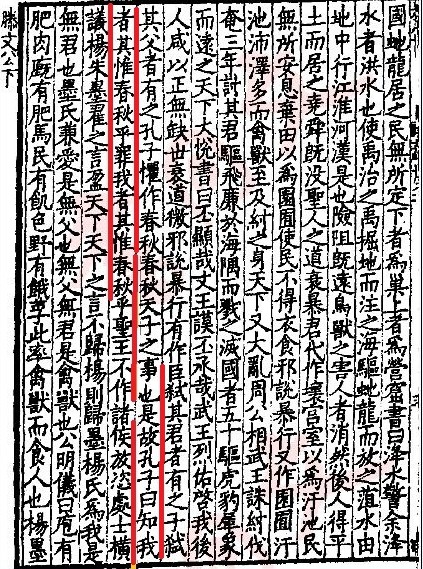 國虵龍居之民無所定下者爲巢上者爲營窟書曰洚水警余洚
水者洪水也使禹治之禹掘地而注之海驅虵龍而放之菹水由
地中行江淮河漢是也險阻旣遠鳥獸之害人者消然後人得平
土而居之堯舜旣沒聖人之道衰暴君代作壞宮室以爲汙池民
無所安息棄田以爲園囿使民不得衣食邪說暴行又作園囿汙
池沛澤多而禽獸至及紂之身天下又大亂周公相武王誅紂伐
奄三年討其君驅飛廉於海隅而戮之滅國者五十驅虎豹犀象
而遠之天下大悅書曰丕顯哉文王謨丕承哉武王列佑啓我後
人咸以正無缺世衰道微邪說暴行有作臣弑其君者有之子弑
其父者有之孔子懼作春秋春秋天子之事也是故孔子曰知我
者其惟春秋乎罪我者其惟春秋乎聖王不作諸侯放恣處士橫
議楊朱墨翟之言盈天下天下之言不歸楊則歸墨楊氏爲我是
無君也墨氏兼愛是無父也無父無君是禽獸也公明儀曰庖有
肥肉廐有肥馬民有飢色野有餓莩此率禽獸而食人也楊墨
滕文公下